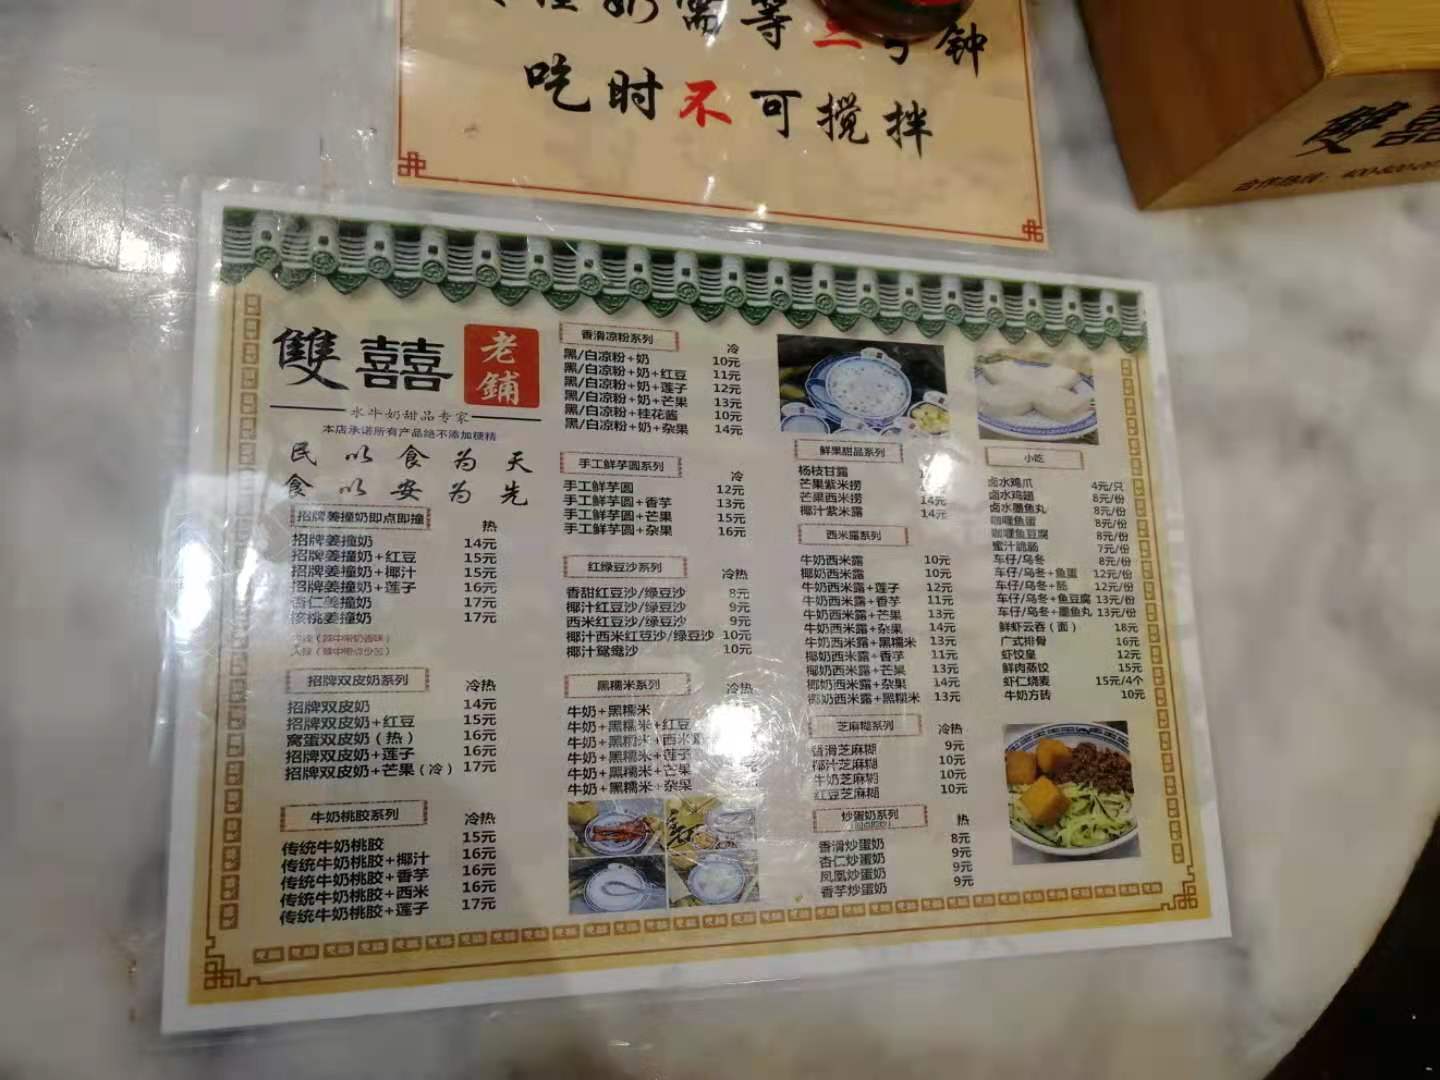 奶需等三分钟
吃时不可搅拌
雙囍
雙囍 老鋪
水牛奶甜品专家
本店承诺所有产品绝不添加糖精
民以食为天
食以安为先
招牌姜撞奶即点即撞
热
招牌姜撞奶 14元
招牌姜撞奶+红豆 15元
招牌姜撞奶+椰汁 15元
招牌姜撞奶+莲子 16元
杏仁姜撞奶 17元
核桃姜撞奶 17元
招牌双皮奶系列
冷热
招牌双皮奶 14元
招牌双皮奶+红豆 15元
窝蛋双皮奶（热） 16元
招牌双皮奶+莲子 16元
招牌双皮奶+芒果（冷） 17元
牛奶桃胶系列
冷热
传统牛奶桃胶 15元
传统牛奶桃胶+椰汁 16元
传统牛奶桃胶+香芋 16元
传统牛奶桃胶+西米 16元
传统牛奶桃胶+莲子 17元
香滑凉粉系列
冷
黑/白凉粉+奶 10元
黑/白凉粉+奶+红豆 11元
黑/白凉粉+奶+莲子 12元
黑/白凉粉+奶+芒果 13元
黑/白凉粉+桂花酱 10元
黑/白凉粉+奶+杂果 14元
手工鲜芋圆系列
冷
手工鲜芋圆 12元
手工鲜芋圆+香芋 13元
手工鲜芋圆+芒果 15元
手工鲜芋圆+杂果 16元
红绿豆沙系列
冷热
香甜红豆沙/绿豆沙 8元
椰汁红豆沙/绿豆沙 9元
西米红豆沙/绿豆沙 9元
椰汁西米红豆沙/绿豆沙 10元
椰汁鸳鸯沙 10元
黑糯米系列
冷热
牛奶+黑糯米
牛奶+黑糯米+红豆
牛奶+黑糯米+西米
牛奶+黑糯米+莲子
牛奶+黑糯米+芒果
牛奶+黑糯米+杂果
鲜果甜品系列
杨枝甘露
芒果紫米捞
芒果西米捞 14元
椰汁紫米露 14元
西米露系列
牛奶西米露 10元
椰奶西米露 10元
牛奶西米露+莲子 12元
牛奶西米露+香芋 11元
牛奶西米露+芒果 13元
牛奶西米露+杂果 14元
牛奶西米露+黑糯米 13元
椰奶西米露+香芋 11元
椰奶西米露+芒果 13元
椰奶西米露+杂果 14元
椰奶西米露+黑糯米 13元
芝麻糊系列
冷热
香滑芝麻糊 9元
椰汁芝麻糊 10元
牛奶芝麻糊 10元
红豆芝麻糊 10元
炒蛋奶系列
热
香滑炒蛋奶 8元
杏仁炒蛋奶 9元
凤凰炒蛋奶 9元
香芋炒蛋奶 9元
小吃
卤水鸡爪 4元/只
卤水鸡翅 8元/份
卤水墨鱼丸 8元/份
咖喱鱼蛋 8元/份
咖喱鱼豆腐 8元/份
蜜汁鹅肠 7元/份
车仔/乌冬 8元/份
车仔/乌冬+鱼蛋 12元/份
车仔/乌冬+肠 12元/份
车仔/乌冬+鱼豆腐 13元/份
车仔/乌冬+墨鱼丸 13元/份
鲜虾云吞（面） 18元
广式排骨 16元
虾饺皇 12元
鲜肉蒸饺 15元
虾仁烧麦 15元/4个
牛奶方砖 10元